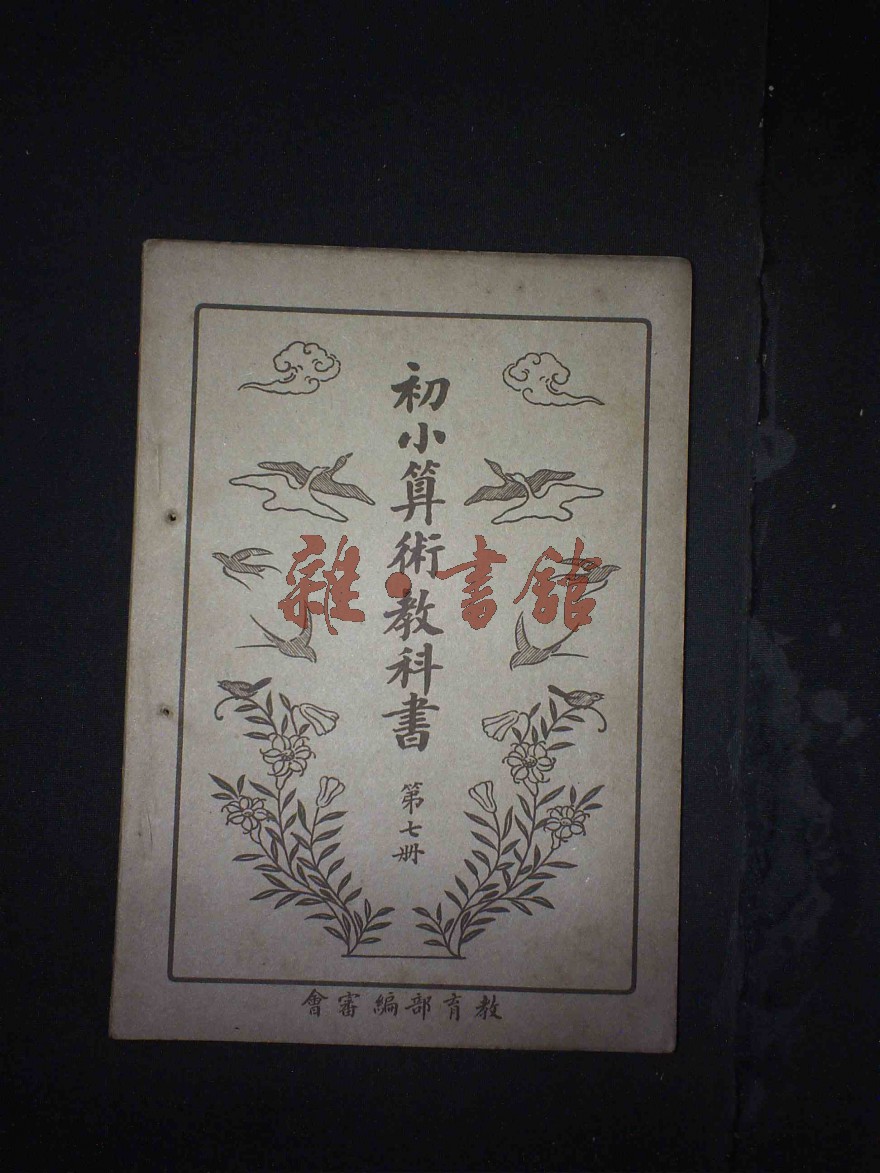 初小算術教科書
第七册
教育部編審會
雜·書館